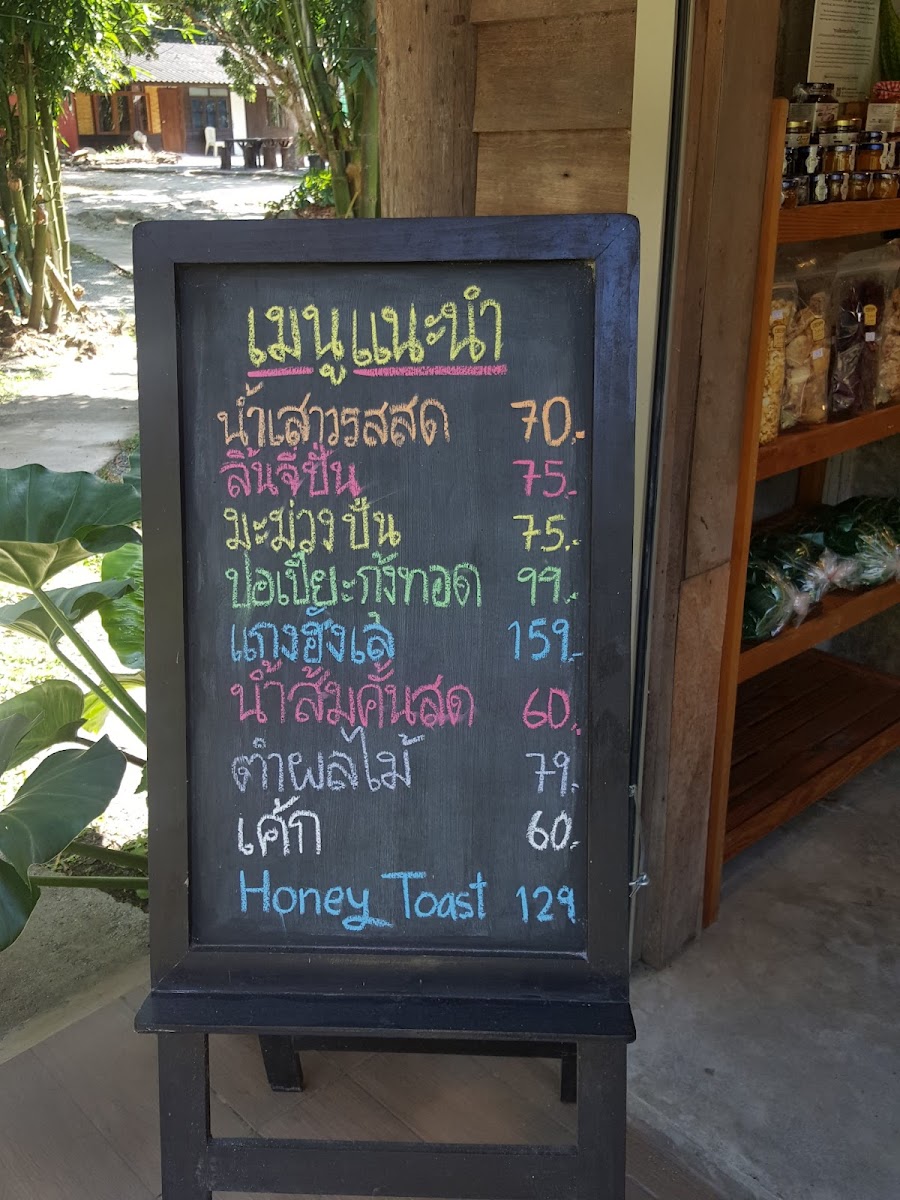 เมนูแนะนำ
น้ำเสาวรสสด 70.-
ลิ้นจี่ปั่น 75.-
มะม่วงปั่น 75.-
ปอเปี๊ยะกุ้งทอด 99.-
แกงฮังเล 159.-
น้ำส้มคั้นสด 60.-
ตำผลไม้ 79.-
เค้ก 60.-
Honey Toast 129